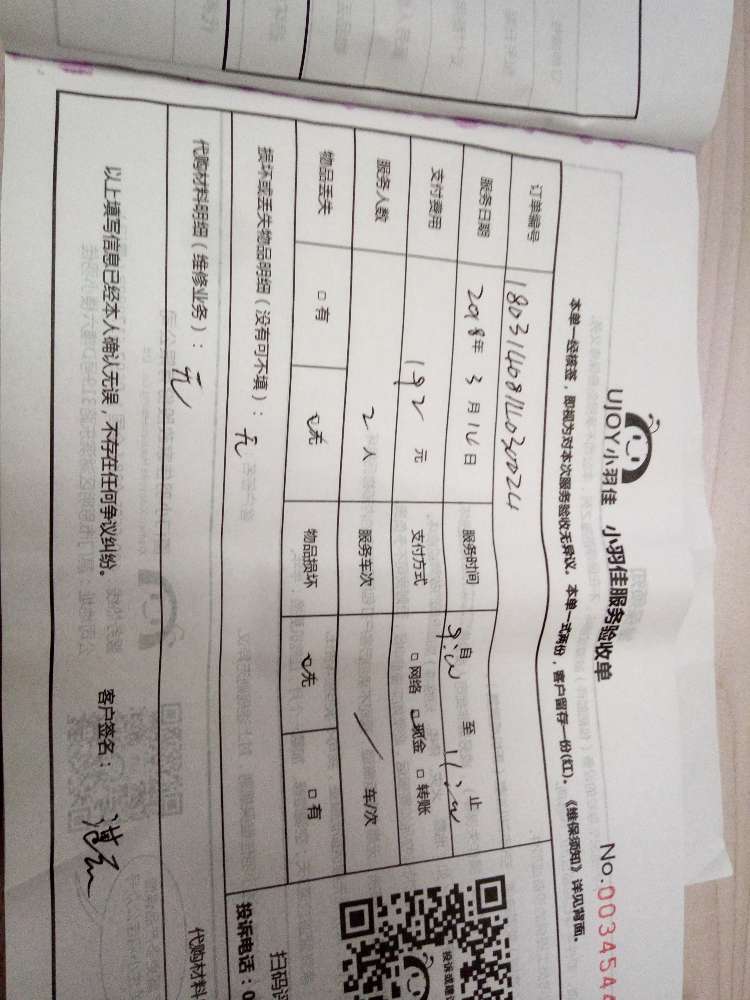 UJOY小羽佳 小羽佳服务验收单
No:0034544
本单一经核签，即视为对本次服务验收无异议。本单一式两份，客户留存一份(红)。《维保须知》详见背面。
订单编号
服务日期 2018年 3月14日 服务时间 自 至 止
支付费用 192 元 支付方式 □网络 □现金 □转账
服务人数 2 人 服务车次 / 车/次
物品丢失 □有 □无 物品损坏 □无 □有
损坏或丢失物品明细（没有可不填）：无
代购材料明细（维修业务）：无
代购材料
以上填写信息已经本人确认无误，不存在任何争议纠纷。 客户签名：
投诉电话：0